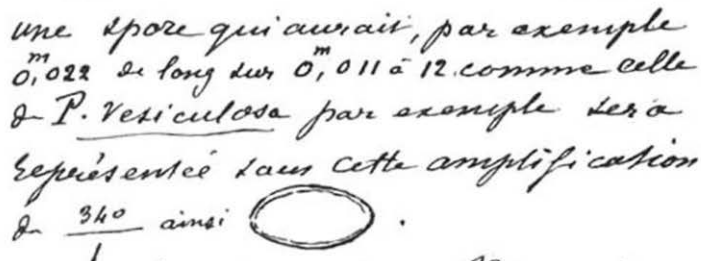 une spore qui aurait, par exemple
0,ᵐ022 de long sur 0,ᵐ011 à 12. comme celle
de P. Vesiculosa par exemple sera
représentée sous cette amplification
de 340/1 ainsi .